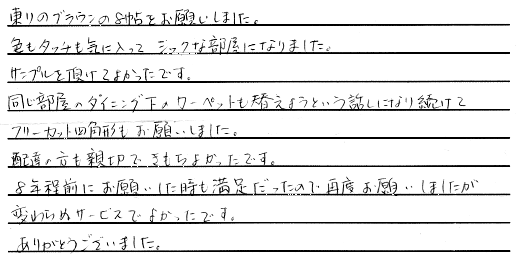 東リのブラウンの8帖をお願いしました。
色もタッチも気に入って シックな部屋になりました。
サンプルを頂けてよかったです。
同じ部屋のダイニング下のカーペットも替えようという話しになり続けて
フリーカット四角形もお願いしました。
配達の方も親切できもちよかったです。
8年程前にお願いした時も満足だったので再度お願いしましたが
変わらぬサービスでよかったです。
ありがとうございました。